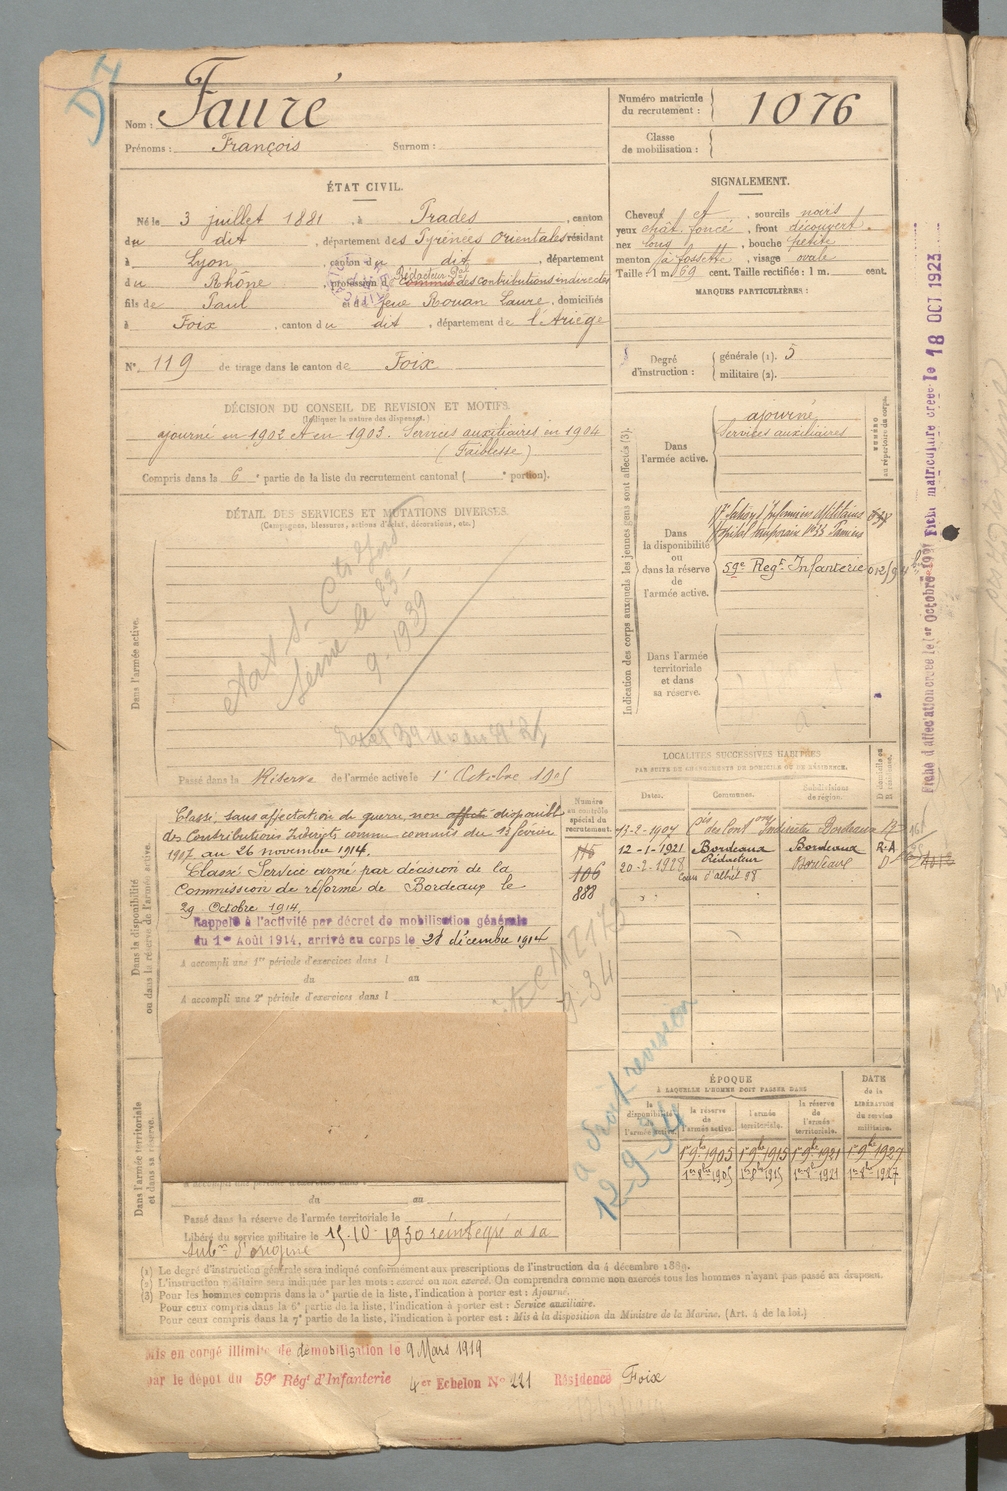 Nom : Fauré
Prénoms : François Surnom :
Numéro matricule du recrutement : 1076
Classe de mobilisation :
ÉTAT CIVIL.
Né le 3 juillet 1881, à Prades, canton
du dit, département des Pyrénées Orientales résidant
à Lyon, canton du dit, département
du Rhône, profession de Commis des contributions indirectes
Rédacteur Pal
fils de Paul et de feue Rouan Laure, domiciliés
à Foix, canton du dit, département de l'Ariège
N° 119 de tirage dans le canton de Foix
SIGNALEMENT.
Cheveux et, sourcils noirs
yeux chât. foncé, front découvert.
nez long, bouche petite
menton à fossette, visage ovale
Taille : 1 m. 69 cent. Taille rectifiée : 1 m. cent.
MARQUES PARTICULIÈRES :
Degré d'instruction : générale (1). 5
militaire (2).
DÉCISION DU CONSEIL DE REVISION ET MOTIFS.
(Indiquer la nature des dispenses.)
ajourné en 1902 et en 1903. Services auxiliaires en 1904
(Faiblesse)
Compris dans la 6e partie de la liste du recrutement cantonal ( e portion).
DÉTAIL DES SERVICES ET MUTATIONS DIVERSES.
(Campagnes, blessures, actions d'éclat, décorations, etc.)
Dans l'armée active.
9-1939
Passé dans la Réserve de l'armée active le 1er Octobre 1905
Indication des corps auxquels les jeunes gens sont affectés (3).
NUMÉRO au répertoire du corps.
Dans l'armée active.
ajourné
Services auxiliaires
Dans la disponibilité ou dans la réserve de l'armée active.
Infirmiers Militaires
Hôpital temporaire N° 33 Pamiers
59e Regt Infanterie
Dans l'armée territoriale et dans sa réserve.
Fiche matriculaire créée le 18 OCT 1923
Fiche d'affectation créée le 1er Octobre 1927
Dans la disponibilité ou dans la réserve de l'armée active.
Numéro au contrôle spécial du recrutement.
116
106
888
Classé, sans affectation de guerre, non affecté disponible
des Contributions Indirects comme commis du 13 février
1907 au 26 novembre 1914.
Classé Service armé par décision de la
Commission de réforme de Bordeaux le
29 Octobre 1914.
Rappelé à l'activité par décret de mobilisation générale
du 1er Août 1914, arrivé au corps le 28 décembre 1914
A accompli une 1re période d'exercices dans l
du au
A accompli une 2e période d'exercices dans l
LOCALITÉS SUCCESSIVES HABITÉES
PAR SUITE DE CHANGEMENTS DE DOMICILE OU DE RÉSIDENCE.
Dates. Communes. Subdivisions de région. D domicile ou R résidence.
13-2-1907 Indirectes Bordeaux
12-1-1921 Bordeaux Bordeaux R.A
20-2-1928 Rédacteur Bordeaux D
Cours d'Albret 98
à droit revision
12-9-34
ÉPOQUE
À LAQUELLE L'HOMME DOIT PASSER DANS
DATE de la LIBÉRATION du service militaire.
la disponibilité de l'armée active. la réserve de l'armée active. l'armée territoriale. la réserve de l'armée territoriale.
1er 9bre 1905 1er 9bre 1915 1er 9bre 1921 1er 9bre 1927
1er 8bre 1905 1er 8bre 1915 1er 8bre 1921 1er 8bre 1927
Dans l'armée territoriale et dans sa réserve.
du au
Passé dans la réserve de l'armée territoriale le
Libéré du service militaire le 15-10-1930 réintégré à sa
subon d'origine
(1) Le degré d'instruction générale sera indiqué conformément aux prescriptions de l'instruction du 4 décembre 1889.
(2) L'instruction militaire sera indiquée par les mots : exercé ou non exercé. On comprendra comme non exercés tous les hommes n'ayant pas passé au drapeau.
(3) Pour les hommes compris dans la 5e partie de la liste, l'indication à porter est : Ajourné.
Pour ceux compris dans la 6e partie de la liste, l'indication à porter est : Service auxiliaire.
Pour ceux compris dans la 7e partie de la liste, l'indication à porter est : Mis à la disposition du Ministre de la Marine. (Art. 4 de la loi.)
Mis en congé illimité de démobilisation le 9 Mars 1919
par le dépôt du 59e Régt d'Infanterie 4er Echelon N° 221 Résidence Foix